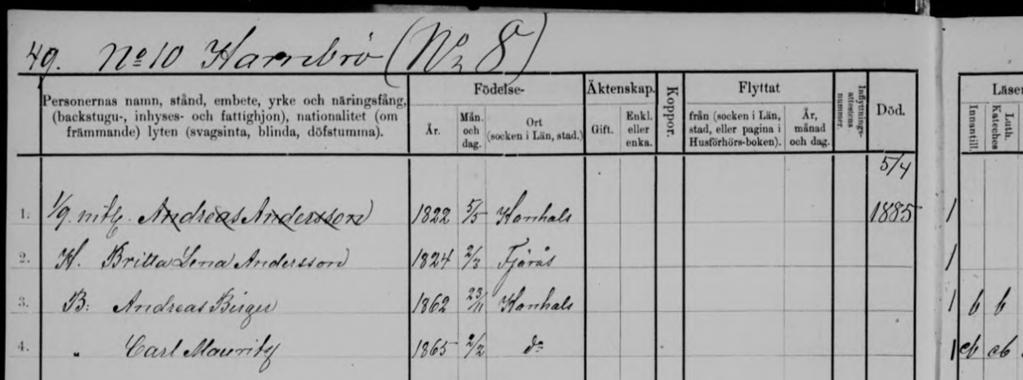 49. No 10 Hambrö (No 8)
Personernas namn, stånd, embete, yrke och näringsfång, (backstugu-, inhyses- och fattighjon), nationalitet (om främmande) lyten (svagsinta, blinda, döfstumma).
Födelse-
År.
Mån. och dag.
Ort (socken i Län, stad.)
Äktenskap.
Gift.
Enkl. eller enka.
Koppor.
Flyttat
från (socken i Län, stad, eller pagina i Husförhörs-boken).
År, månad och dag.
Inflyttnings-attestens nummer.
Död.
Läser
Innantill.
Luth. Kateches
5/4
1. 1/9 mtl. Andreas Andersson 1822 5/5 Konhals 1885 1
2. H. Britta Lena Andersson 1824 2/3 Fjärås 1
3. B: Andreas Birger 1862 23/11 Konhals 1 b b
4. " Carl Mauritz 1865 2/2 do 1 cb cb